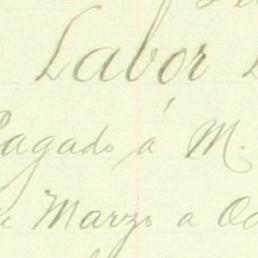 Labor
Pagado á M.
de Marzo a Oc